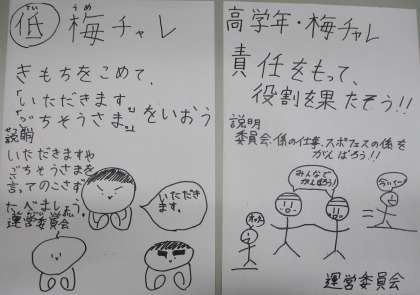 てい
低
うめ
梅チャレ
きもちをこめて、
「いただきます
ごちそうさま」をいおう
せつめい
説明
いただきますや
ごちそうさまを
言ってのこさず
たべましょう。
運営委員会
いただき
ます。
高学年・梅チャレ
責任をもって、
役割を果たそう!!
説明
委員会、係の仕事、スポフェスの係を
がんばろう!!
みんなで
がんばろう!
オー
運営委員会